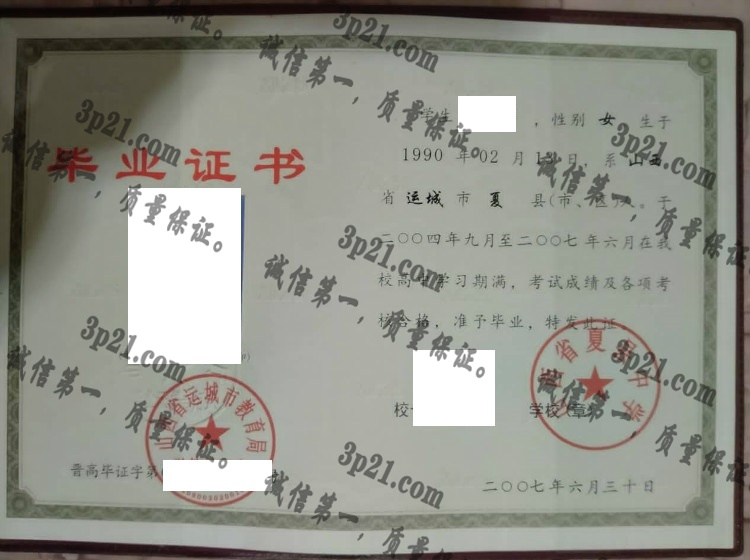 毕业证书
学生 ，性别 女 生于
1990 年 02 月 日，系 山西
省 运城 市 夏 县(市、区)人。于
二〇〇四年九月至二〇〇七年六月在我
校高中学习期满，考试成绩及各项考
核合格，准予毕业，特发此证。
校
学校(章)
山西省运城市教育局
省夏县中学
晋高毕证字第
二〇〇七年六月三十日
3p21.com
诚信第一，质量保证。
3p21.com
诚信第一，质量保证。
3p21.com
诚信第一，质量保证。
3p21.com
诚信第一，质量保证。
3p21.com
诚信第一，质量保证。
3p21.com
诚信第一，质量保证。
3p21.com
诚信第一，质量保证。
3p21.com
诚信第一，质量保证。